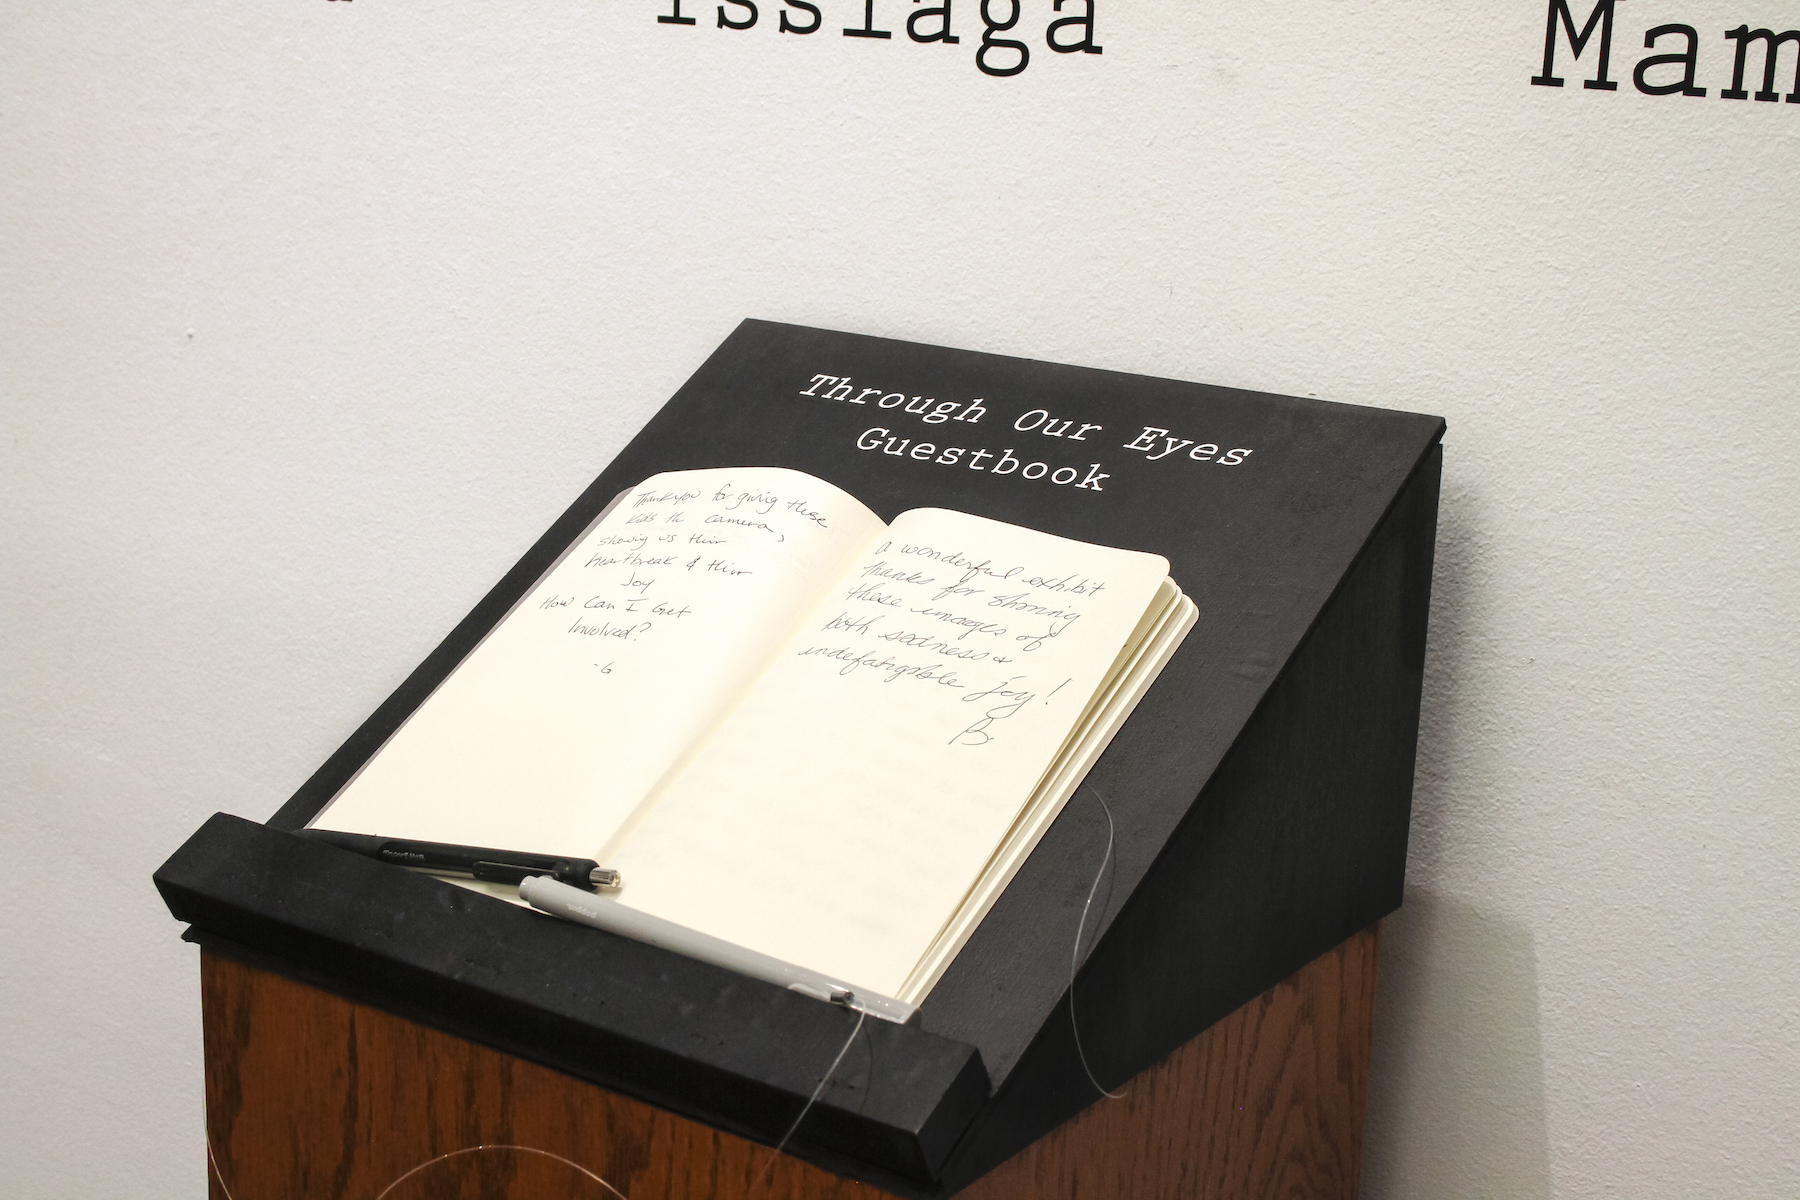 Issiaga
Mam
Through Our Eyes
Guestbook
Thank you for givig these
kids th camera,
showig us thir
heartbreak & thir
Joy
How Can I Get
Involved?
-G
a wonderful exhibit
thanks for sharing
these images of
both sadness &
indefatigable joy!
B